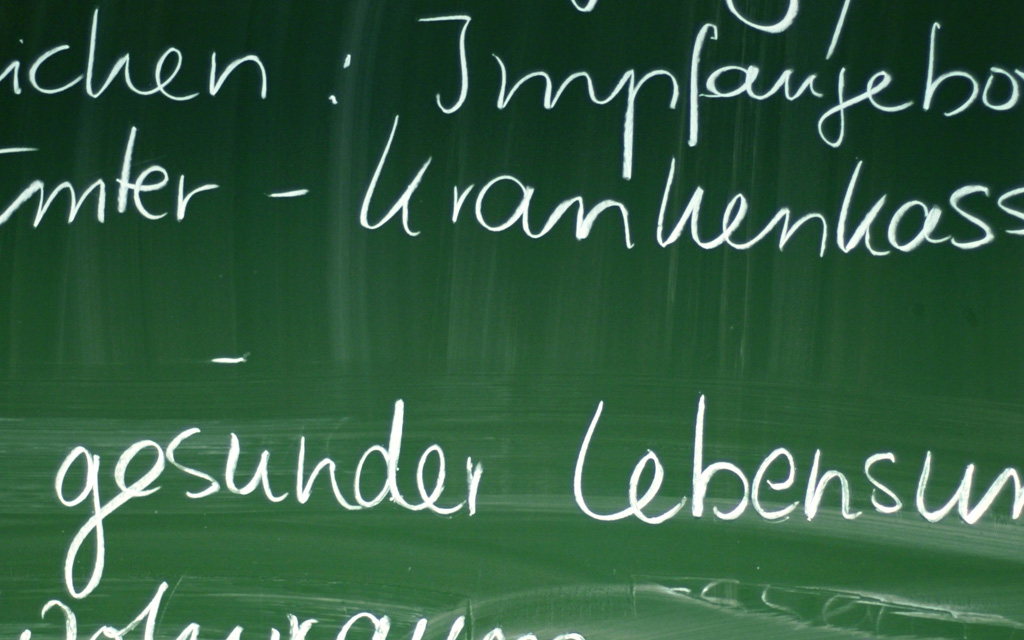 ichen : Impfangebo
ämter - Krankenkass
-
gesunder Lebensum
Wohnraum